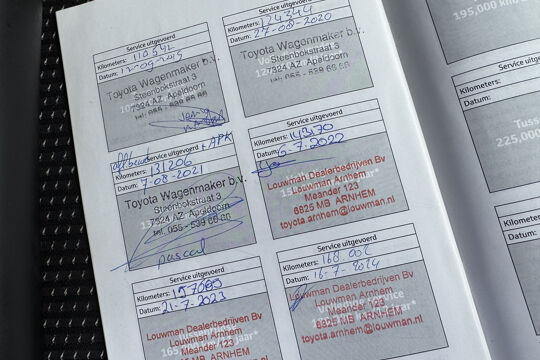 Service uitgevoerd
Kilometers: 110342
Datum: 12-09-2019
Toyota Wagenmaker b.v.
Steenbokstraat 3
7324 AZ Apeldoorn
Service uitgevoerd
Kilometers: 124344
Datum: 27-08-2020
Toyota Wagenmaker b.v.
Steenbokstraat 3
7324 AZ Apeldoorn
tel: 055 - 539 66 88
Service uitgevoerd + APK
Kilometers: 131206
Datum: 7-08-2021
Toyota Wagenmaker b.v.
Steenbokstraat 3
7324 AZ Apeldoorn
tel: 055 - 539 66 88
pascal
Service uitgevoerd
Kilometers: 143170
Datum: 6-7-2022
Louwman Dealerbedrijven Bv
Louwman Arnhem
Meander 123
6825 MB ARNHEM
toyota.arnhem@louwman.nl
Service uitgevoerd
Kilometers: 157089
Datum: 21-7-2023
Louwman Dealerbedrijven Bv
Louwman Arnhem
Meander 123
6825 MB ARNHEM
Service uitgevoerd
Kilometers: 168.002
Datum: 16-7-2024
Louwman Dealerbedrijven Bv
Louwman Arnhem
Meander 123
6825 MB ARNHEM
toyota.arnhem@louwman.nl
195,000 km
Kilometers:
Datum:
225,000
Kilometers:
Datum: